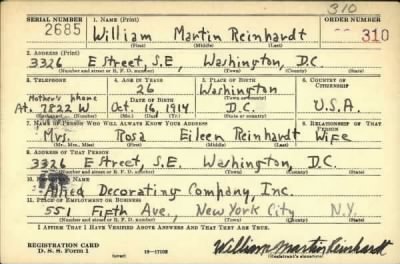 310
SERIAL NUMBER 1. NAME (Print) ORDER NUMBER
2685 William Martin Reinhardt 310
(First) (Middle) (Last)
2. ADDRESS (Print)
3326 E Street, S.E, Washington, D.C.
(Number and street or R. F. D. number) (Town) (County) (State)
3. TELEPHONE 4. AGE IN YEARS 5. PLACE OF BIRTH 6. COUNTRY OF CITIZENSHIP
26 Washington
Mother's phone DATE OF BIRTH (Town or county)
At. 7822 W Oct. 16, 1914 D.C. U.S.A.
7. NAME OF PERSON WHO WILL ALWAYS KNOW YOUR ADDRESS 8. RELATIONSHIP OF THAT PERSON
Mrs. Rosa Eileen Reinhardt Wife
(Mr., Mrs., Miss) (First) (Middle) (Last)
9. ADDRESS OF THAT PERSON
3326 E Street, S.E. Washington, D.C.
(Number and street or R. F. D. number) (Town) (County) (State)
10. NAME
Allied Decorating Company, Inc.
11. PLACE OF EMPLOYMENT OR BUSINESS
551 Fifth Ave., New York City N.Y.
(Number and street or R. F. D. number) (Town) (County) (State)
I AFFIRM THAT I HAVE VERIFIED ABOVE ANSWERS AND THAT THEY ARE TRUE.
REGISTRATION CARD
D. S. S. FORM 1 16-17105 William Martin Reinhardt
(Registrant's signature)